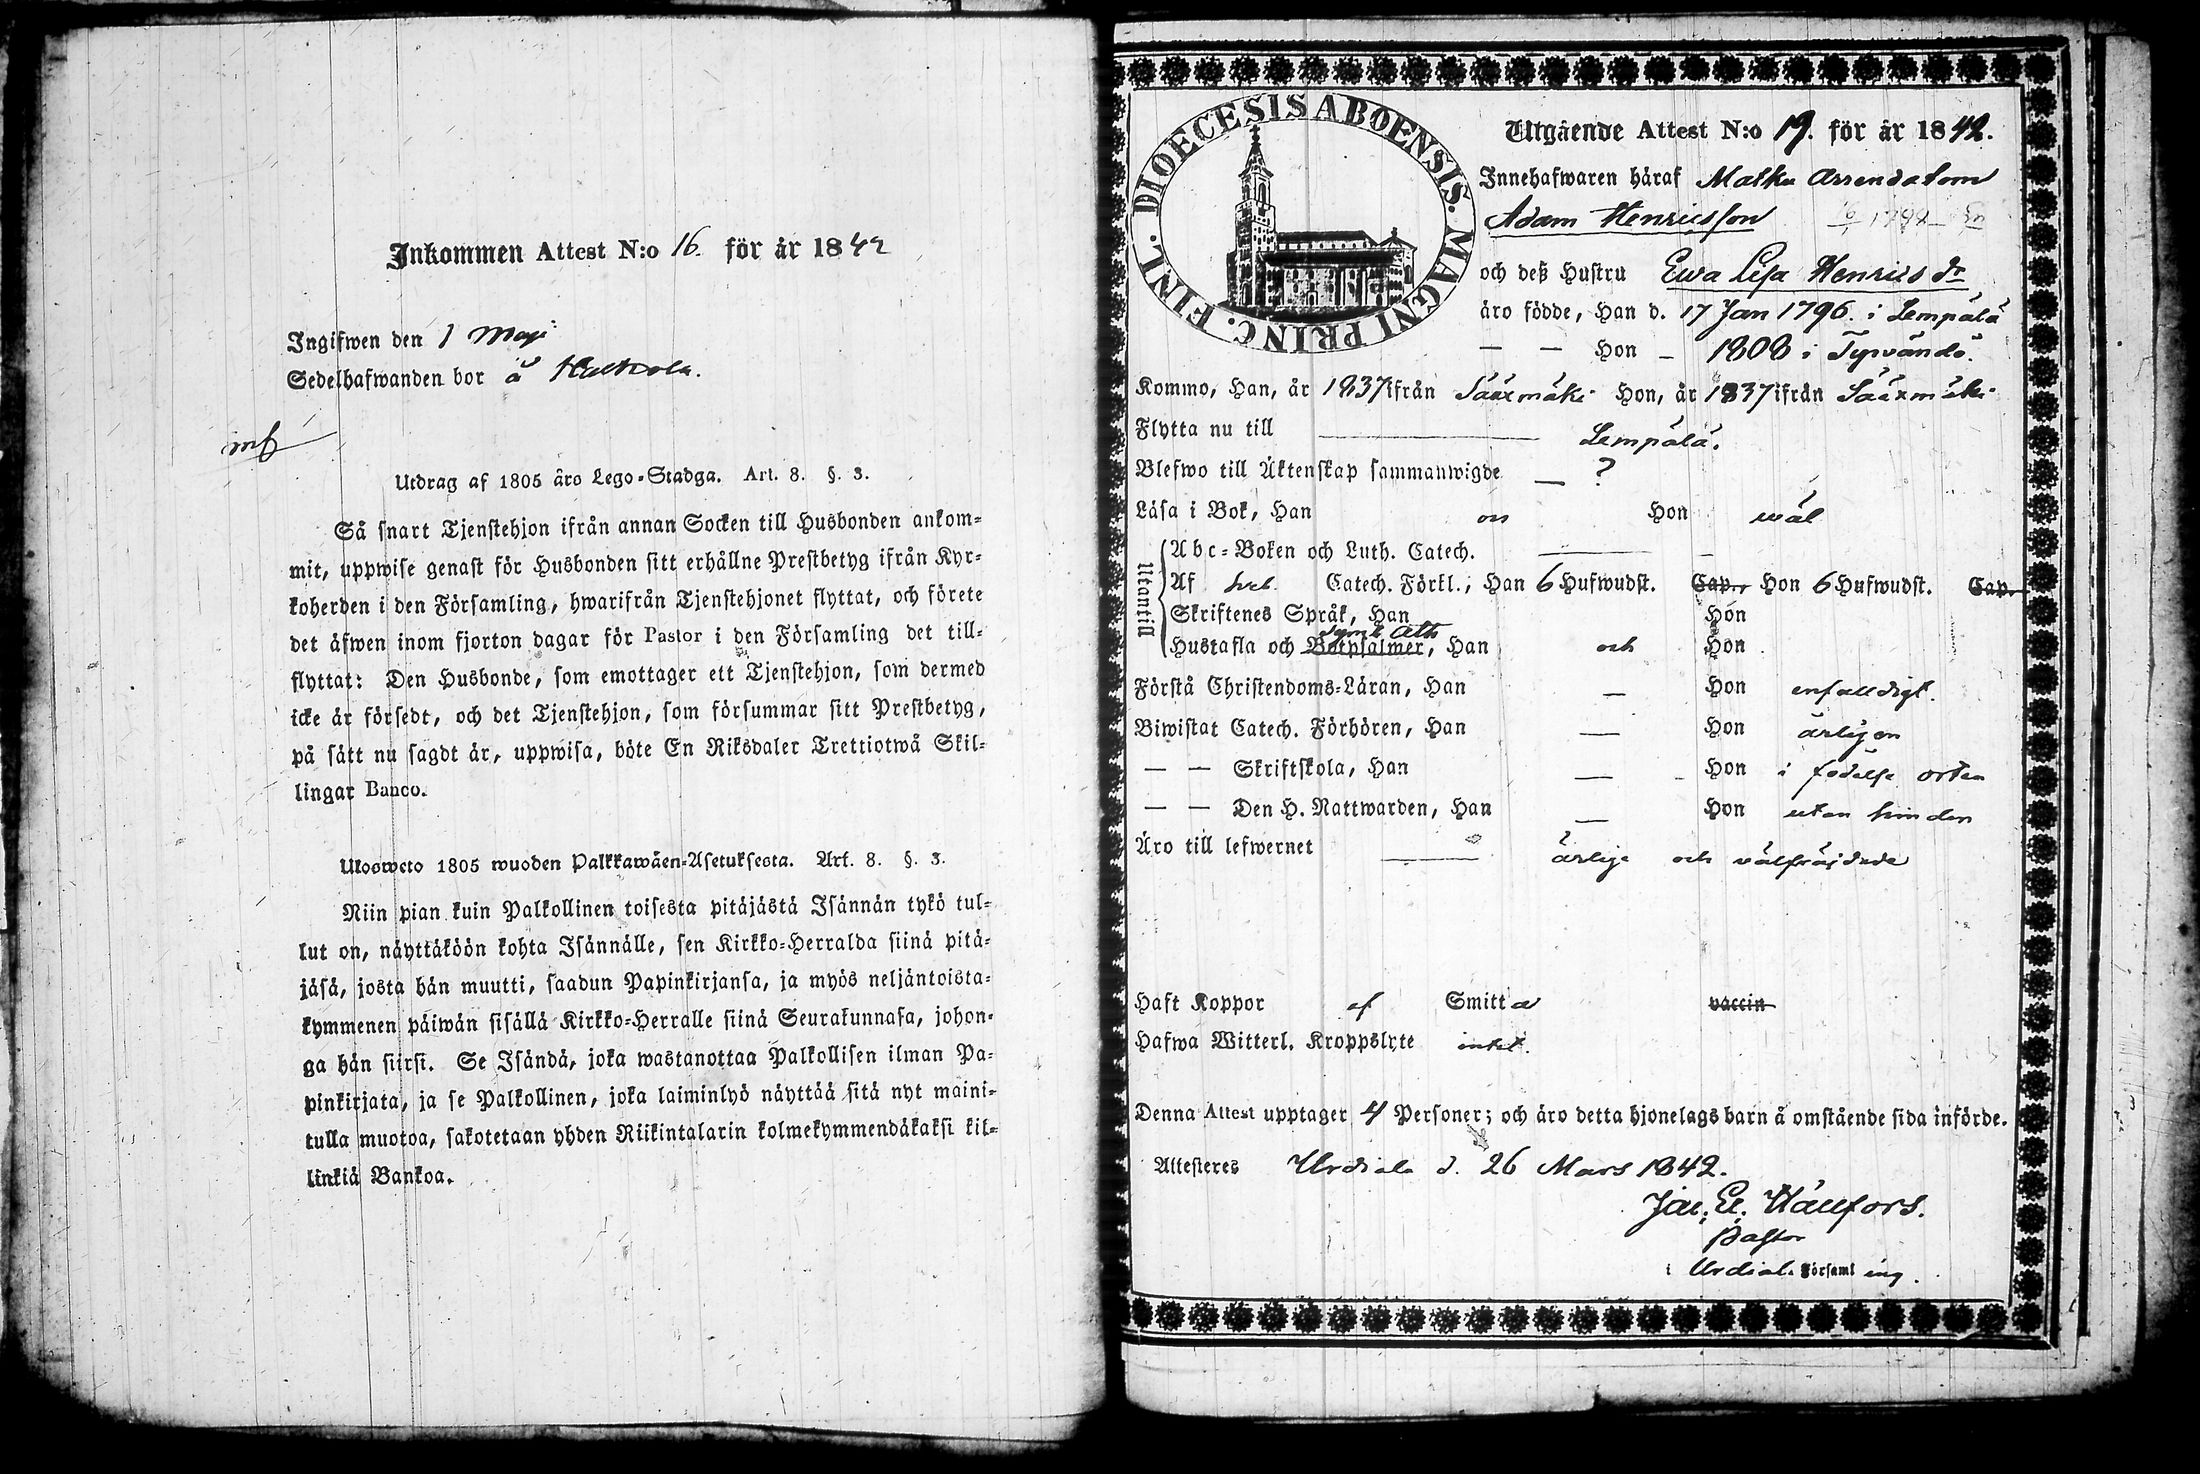 Inkommen Attest N:o 16. för år 1842
Ingifwen den 1 Maji
Sedelhafwanden bor å
Utdrag af 1805 års Lego-Stadga. Art. 8. §. 3.
Så snart Tjenstehjon ifrån annan Socken till Husbonden ankom-
mit, uppwise genast för Husbonden sitt erhållne Prestbetyg ifrån Kyr-
koherden i den Församling, hwarifrån Tjenstehjonet flyttat, och förete
det äfwen inom fjorton dagar för Pastor i den Församling det till-
flyttat: Den Husbonde, som emottager ett Tjenstehjon, som dermed
icke är försedt, och det Tjenstehjon, som försummar sitt Prestbetyg,
på sätt nu sagdt är, uppwisa, böte En Riksdaler Trettiotwå Skil-
lingar Banco.
Ulosweto 1805 wuoden Palkkawäen-Asetuksesta. Art. 8. §. 3.
Niin pian kuin Palkollinen toisesta pitäjästä Isännän tykö tul-
lut on, näyttäköön kohta Isännälle, sen Kirkko-Herralda siinä pitä-
jäsä, josta hän muutti, saadun Papinkirjansa, ja myös neljäntoista-
kymmenen päiwän sisällä Kirkko-Herralle siinä Seurakunnasa, johon-
ga hän siirsi. Se Isändä, joka wastanottaa Palkollisen ilman Pa-
pinkirjata, ja se Palkollinen, joka laiminlyö näyttää sitä nyt maini-
tulla muotoa, sakotetaan yhden Riikintalarin kolmekymmendäkaksi kil-
linkiä Bankoa.
DIOECESIS ABOENSIS. MAGNI PRINC. FINL.
Utgående Attest N:o 19. för år 1842.
Innehafwaren häraf Arrendatorn
Adam Henricsson
och deß Hustru Ewa Lisa Henrics dr
äro födde, Han d. 17 Jan 1796. i Lempälä
— — Hon – 1808 i Tyrvändö.
Kommo, Han, år 1837 ifrån Sääxmäki Hon, år 1837 ifrån Sääxmäki
Flytta nu till Lempälä.
Blefwo till Äktenskap sammanwigde — ?
Läsa i Bok, Han och Hon wäl
Utantill
Abc-Boken och Luth. Catech. —
Af Sveb. Catech. Förkl., Han 6 Hufwudst. Cap., Hon 6 Hufwudst. Cap.
Skriftenes Språk, Han Hon
Symb Ath
Hustafla och Botpsalmer, Han och Hon
Förstå Christendoms-Läran, Han — Hon enfaldigt.
Biwistat Catech. Förhören, Han — Hon årligen
— — Skriftskola, Han — Hon i födelse orten
— — Den H. Nattwarden, Han — Hon utan hinder
Äro till lefwernet ärlige och välfräjdade
Haft Koppor af Smitta vaccin
Hafwa Witterl. Kroppslyte intet.
Denna Attest upptager 4 Personer; och äro detta hjonelags barn å omstående sida införde.
Attesteres Urdiala d. 26 Mars 1842.
Jac. El. Hällfors.
Pastor
i Urdiala Församling.